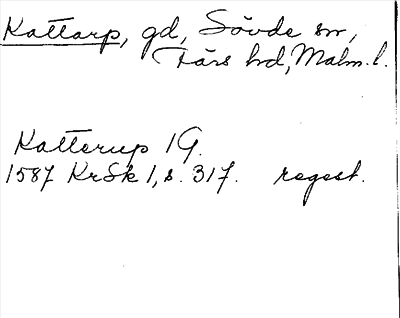 Kattarp, gd, Sövde sn,
Färs hd, Malm. l.
Katterup 1 G.
1587 KrSk 1, s. 317. regest.